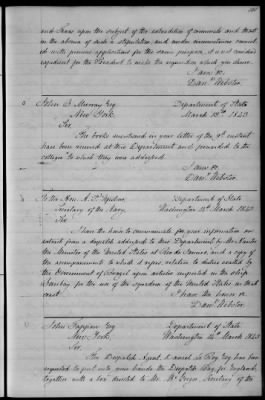 and Texas upon the subject of the extradition of criminals and that
in the absence of such a stipulation and under circumstances connect
ed with previous applications for the same purpose, it is not considered
expedient for the President to make the requisition which you desire.
I am &c.
Danl. Webster.
John S. Murray Esq. Department of State
New York. March 13th 1843
Sir
The books mentioned in your letter of the 9th instant
have been received at this Department and forwarded to the
colleges to which they were addressed.
I am &c
Danl. Webster.
To the Hon. A. P. Upshur Department of State
Secretary of the Navy. Washington 14th March 1843.
Sir
I have the honor to communicate for your information an
extract from a despatch addressed to this Department by Mr.
the Minister of the United States at Rio de Janeiro, and a copy of
the arrangements to which it refers, relative to duties levied by
the Government of Brazil upon articles imported in the ship
for the use of the squadron of the United States on that
coast.
I have the honor &c
Danl. Webster.
John Esq Department of State
New York. Washington 14th March 1843
Sir.
The Despatch Agent, Le Roy Esq. has been
requested to put into your hands the Despatch Bag for England,
together with a box directed to Mr. Secretary of the